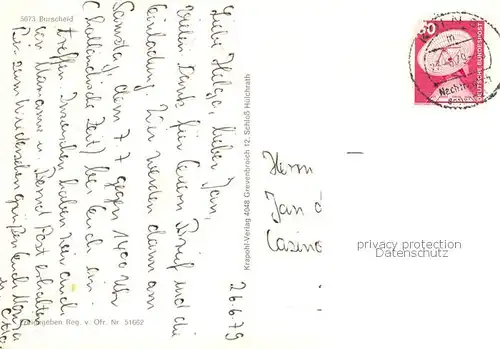 5673 Burscheid
26.6.79
Liebe Helga, lieber Jan,
vielen Dank für Euren Brief und die
Einladung. Wir werden dann am
Samstag, dem 7.7 gegen 1400 Uhr
(holländische Zeit) bei Euch ein-
treffen. Inzwischen haben wir auch
von Marianne u. Bernd Post erhalten.
Bis zum Wiedersehen grüßen Euch
u. Otto
Freigegeben Reg. v. Ofr. Nr. 51662
Krapohl-Verlag 4048 Grevenbroich 12, Schloß Hülchrath
DEUTSCHE BUNDESPOST
Herrn
Jan
Casino
privacy protection
Datenschutz